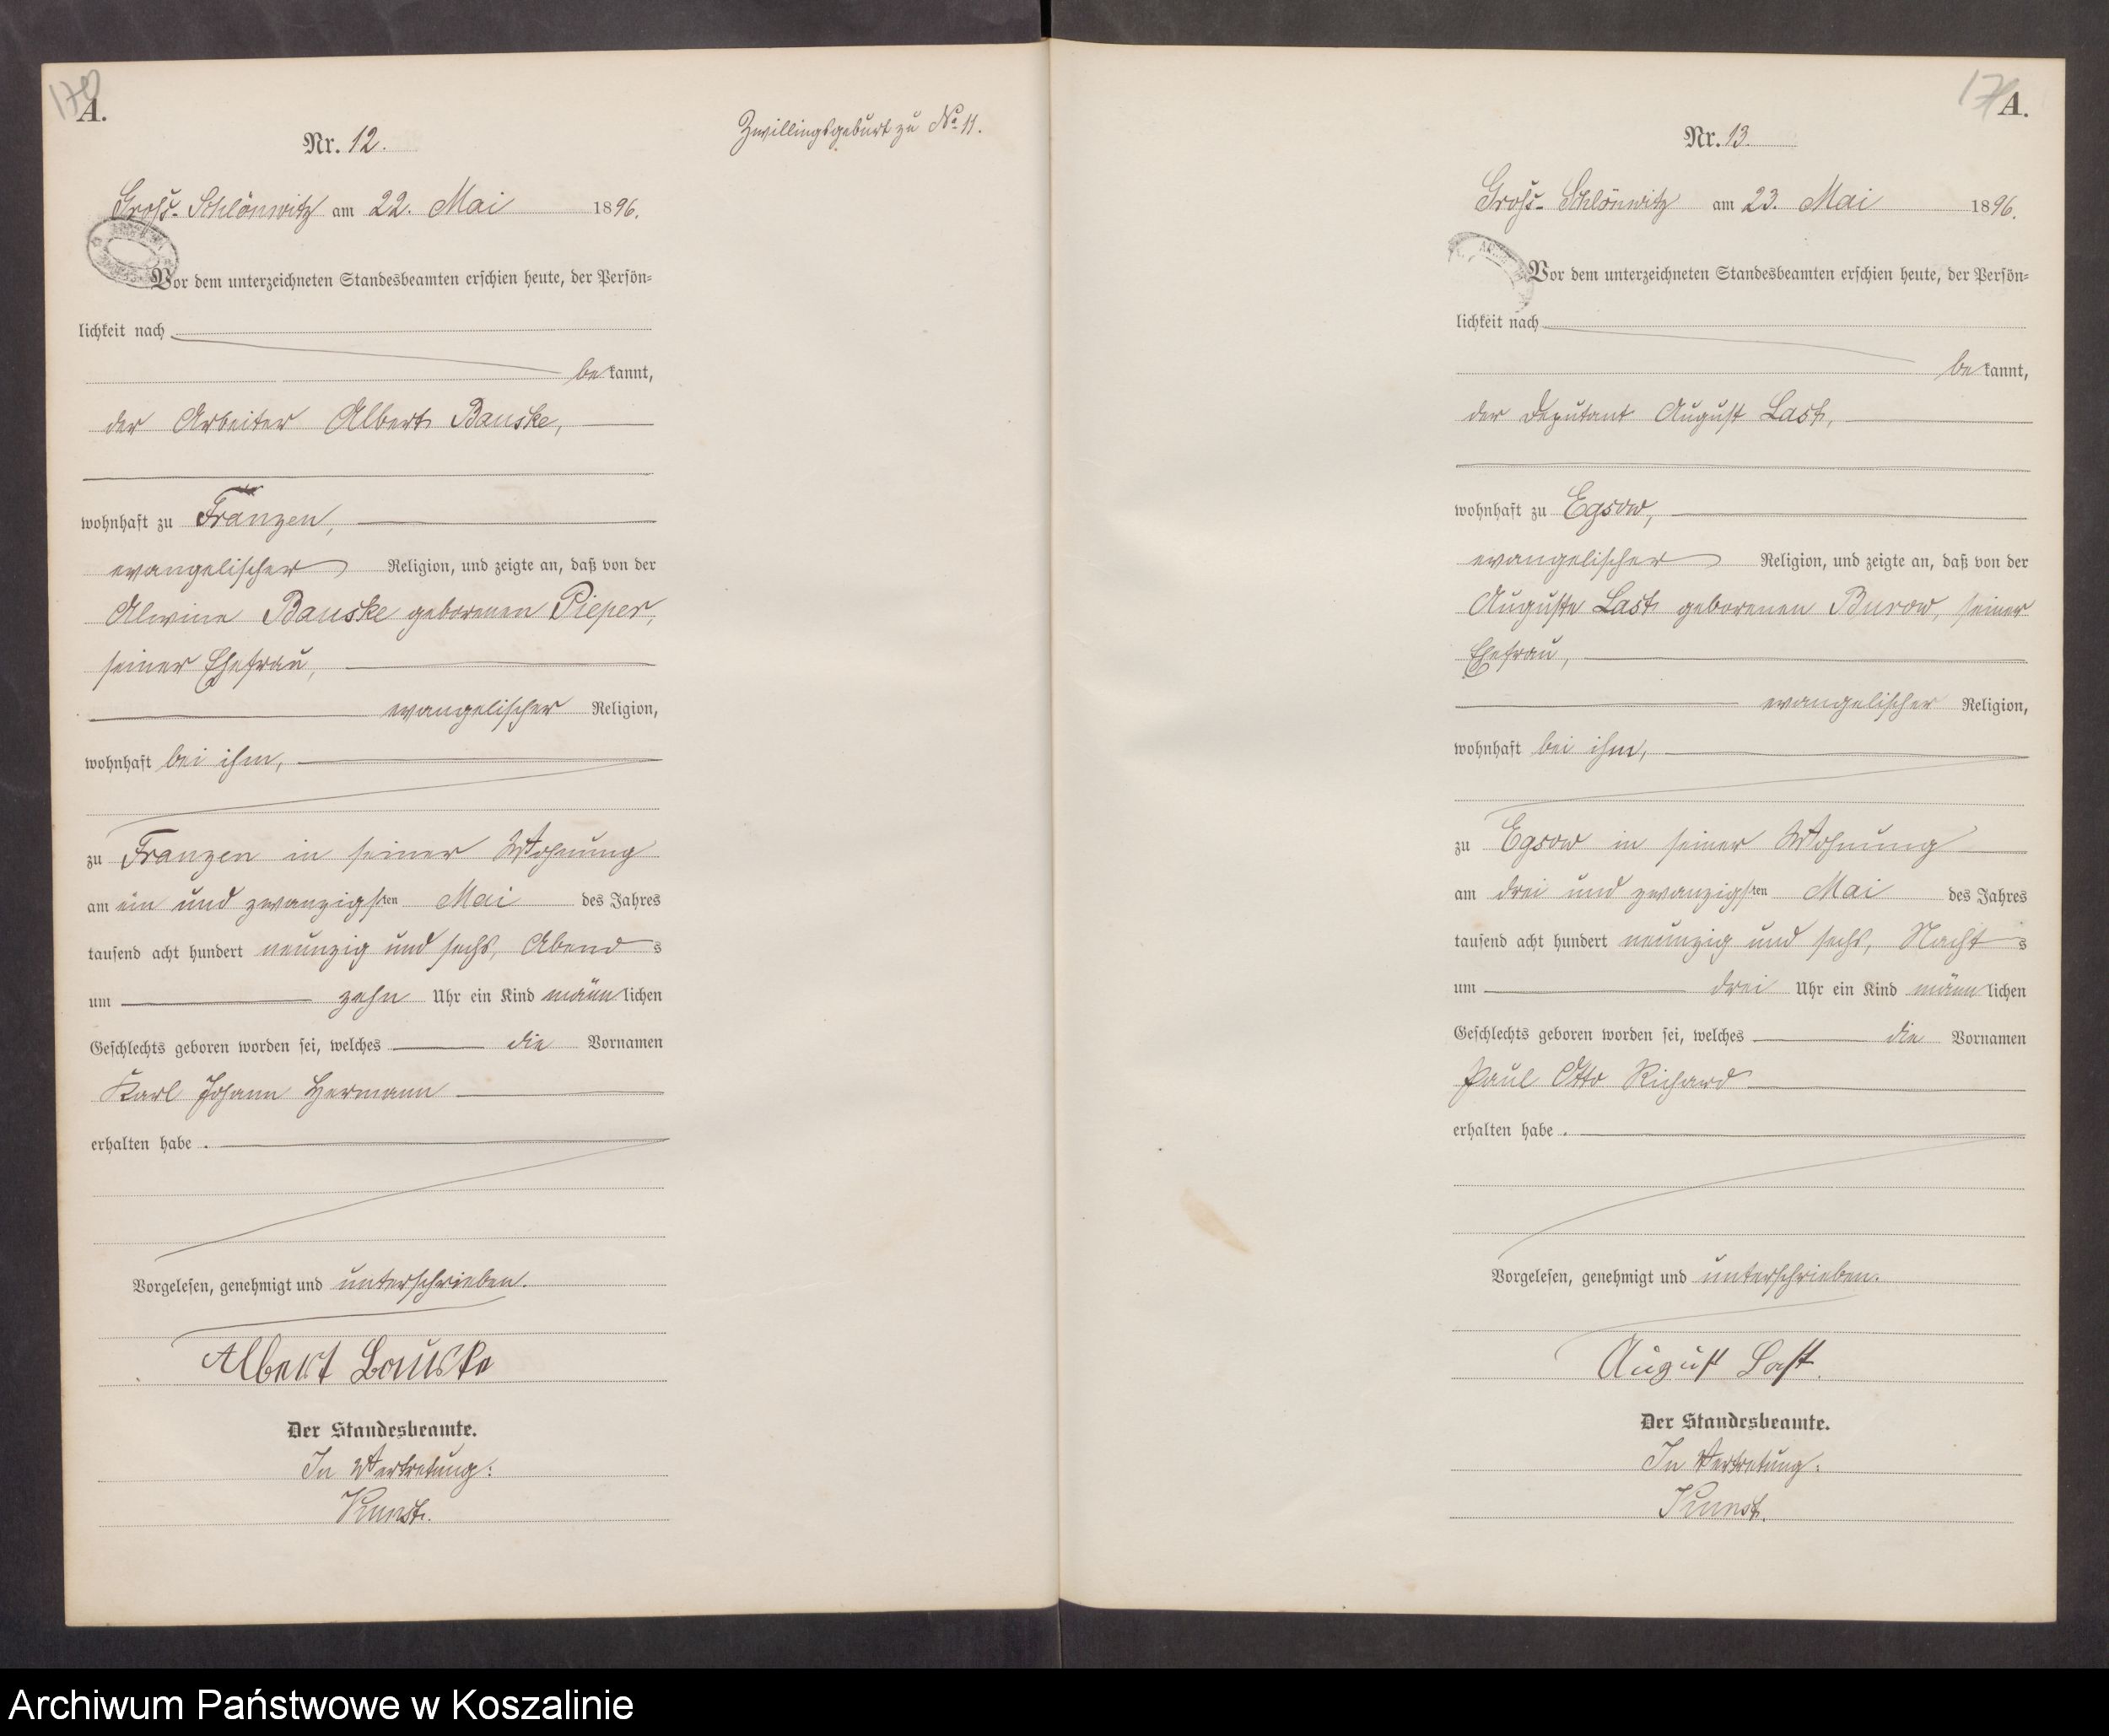 170
A.
Nr. 12.
Zwillingsgeburt zu No 11.
Groß-Schlönwitz am 22. Mai 1896.
Vor dem unterzeichneten Standesbeamten erschien heute, der Persön-
lichkeit nach
bekannt,
der Arbeiter Albert Bauske,
wohnhaft zu Franzen,
evangelischer Religion, und zeigte an, daß von der
Alwine Bauske geborenen Pieper,
seiner Ehefrau,
evangelischer Religion,
wohnhaft bei ihm,
zu Franzen in seiner Wohnung
am ein und zwanzigsten Mai des Jahres
tausend acht hundert neunzig und sechs, Abends
um zehn Uhr ein Kind männlichen
Geschlechts geboren worden sei, welches die Vornamen
Karl Johann Hermann
erhalten habe.
Vorgelesen, genehmigt und unterschrieben.
Albert Bauske
Der Standesbeamte.
In Vertretung:
Kunst.
171
A.
Nr. 13.
Groß-Schlönwitz am 23. Mai 1896.
Vor dem unterzeichneten Standesbeamten erschien heute, der Persön-
lichkeit nach
bekannt,
der Deputant August Last,
wohnhaft zu Egsow,
evangelischer Religion, und zeigte an, daß von der
Auguste Last geborenen Burow, seiner
Ehefrau,
evangelischer Religion,
wohnhaft bei ihm,
zu Egsow in seiner Wohnung
am drei und zwanzigsten Mai des Jahres
tausend acht hundert neunzig und sechs, Nachts
um drei Uhr ein Kind männlichen
Geschlechts geboren worden sei, welches die Vornamen
Paul Otto Richard
erhalten habe.
Vorgelesen, genehmigt und unterschrieben.
August Last.
Der Standesbeamte.
In Vertretung:
Kunst.
Archiwum Państwowe w Koszalinie